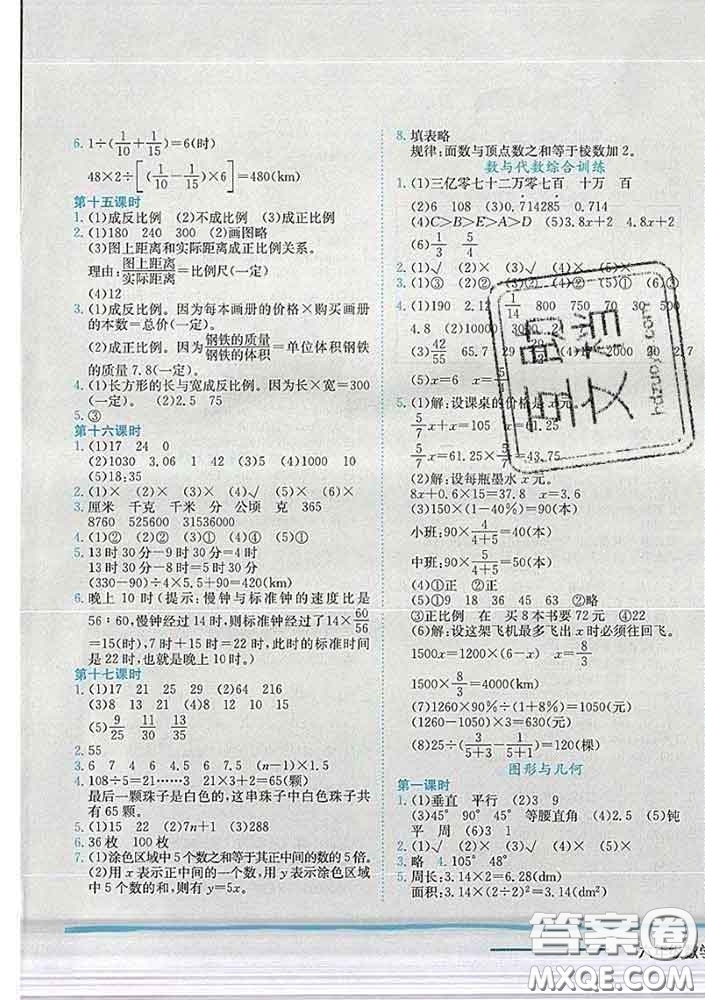 6. 1÷(1/10+1/15)=6(时)
48×2÷[(1/10-1/15)×6]=480(km)
第十五课时
1. (1)成反比例 (2)不成比例 (3)成正比例
2. (1)180 240 300 (2)画图略
(3)图上距离和实际距离成正比例关系。
理由:图上距离/实际距离=比例尺(一定)
(4)12
3. (1)成反比例。因为每本画册的价格×购买画册
的本数=总价(一定)。
(2)成正比例。因为钢铁的质量/钢铁的体积=单位体积钢铁
的质量7.8(一定)。
4. (1)长方形的长与宽成反比例。因为长×宽=300
(一定)。 (2)2.5 75
5. ③
第十六课时
1. (1)17 24 0
(2)1030 3.06 1 42 (3)5 (4)1000 10
(5)18:35
2. (1)× (2)× (3)× (4)√ (5)× (6)×
3. 厘米 千克 千米 分 公顷 克 365
8760 525600 31536000
4. (1)② (2)② (3)① (4)④ (5)①
5. 13时30分-9时30分=4(时)
13时30分-8时=5.5(时)
(330-90)÷4×5.5+90=420(km)
6. 晚上10时(提示:慢钟与标准钟的速度比是
56:60,慢钟经过14时,则标准钟经过了14×60/56
=15(时),7时+15时=22时,此时的标准时间
是22时,也就是晚上10时。)
第十七课时
1. (1)17 21 25 29 (2)64 216
(3)8 13 21 (4)8 9 12 10 15
(5)9/25 11/30 13/35
2. 55
3. 6 7 4 6 4.5 6 (n-1)×1.5
4. 108÷5=21……3 21×3+2=65(颗)
最后一颗珠子是白色的,这串珠子中白色珠子共
有65颗。
5. (1)15 22 (2)7n+1 (3)288
6. 36枚 100枚
7. (1)涂色区域中5个数之和等于其正中间的数的5倍。
(2)用x表示正中间的一个数,用y表示涂色区域
中5个数的和,则有y=5x。
8. 填表略
规律:面数与顶点数之和等于棱数加2。
数与代数综合训练
1. (1)三亿零七十二万零七百 十万 百
(2)6 108 (3)0.714285 0.714
(4)C>B>E>A>D (5)3.8x+2 4.8x+2
(6)1/3 5/4
2. (1)√ (2)× (3)√ (4)× (5)×
3. (1)③ (2)② (3)② (4)② (5)① (6)③
4. (1)190 2.12 1/14 800 750 30
4.8 (2)10000 3000 24
(3)42/55
(5)x=6
5. (1)解:设课桌的价格是x元。
5/7x+x=105 x=61.25
5/7x=61.25×5/7=43.75
(2)解:设每瓶墨水x元。
8x+0.6×15=37.8 x=3.6
(3)150×(1-40%)=90(本)
小班:90×4/(4+5)=40(本)
中班:90×5/(4+5)=50(本)
(4)①正 ②正
(5)①9 18 36 45 63 ②略
③正比例 在 买8本书要72元 ④22
(6)解:设这架飞机最多飞出x时必须往回飞。
1500x=1200×(6-x) x=8/3
1500×8/3=4000(km)
(7)1260×90%÷(1+8%)=1050(元)
(1260-1050)×3=630(元)
(8)25÷(3/(5+3)-1/(5+1))=120(棵)
图形与几何
第一课时
1. (1)垂直 平行 (2)3 9
(3)45° 90° 45° 等腰直角 (4)2.5 (5)钝
平 周 (6)3 1
2. (1)√ (2)× (3)× (4)√ (5)×
3. 略 4. 105° 48°
5. 周长:3.14×2=6.28(dm)
面积:3.14×(2÷2)²=3.14(dm²)
hdzuoye.com
答案圈
MXQE.COM